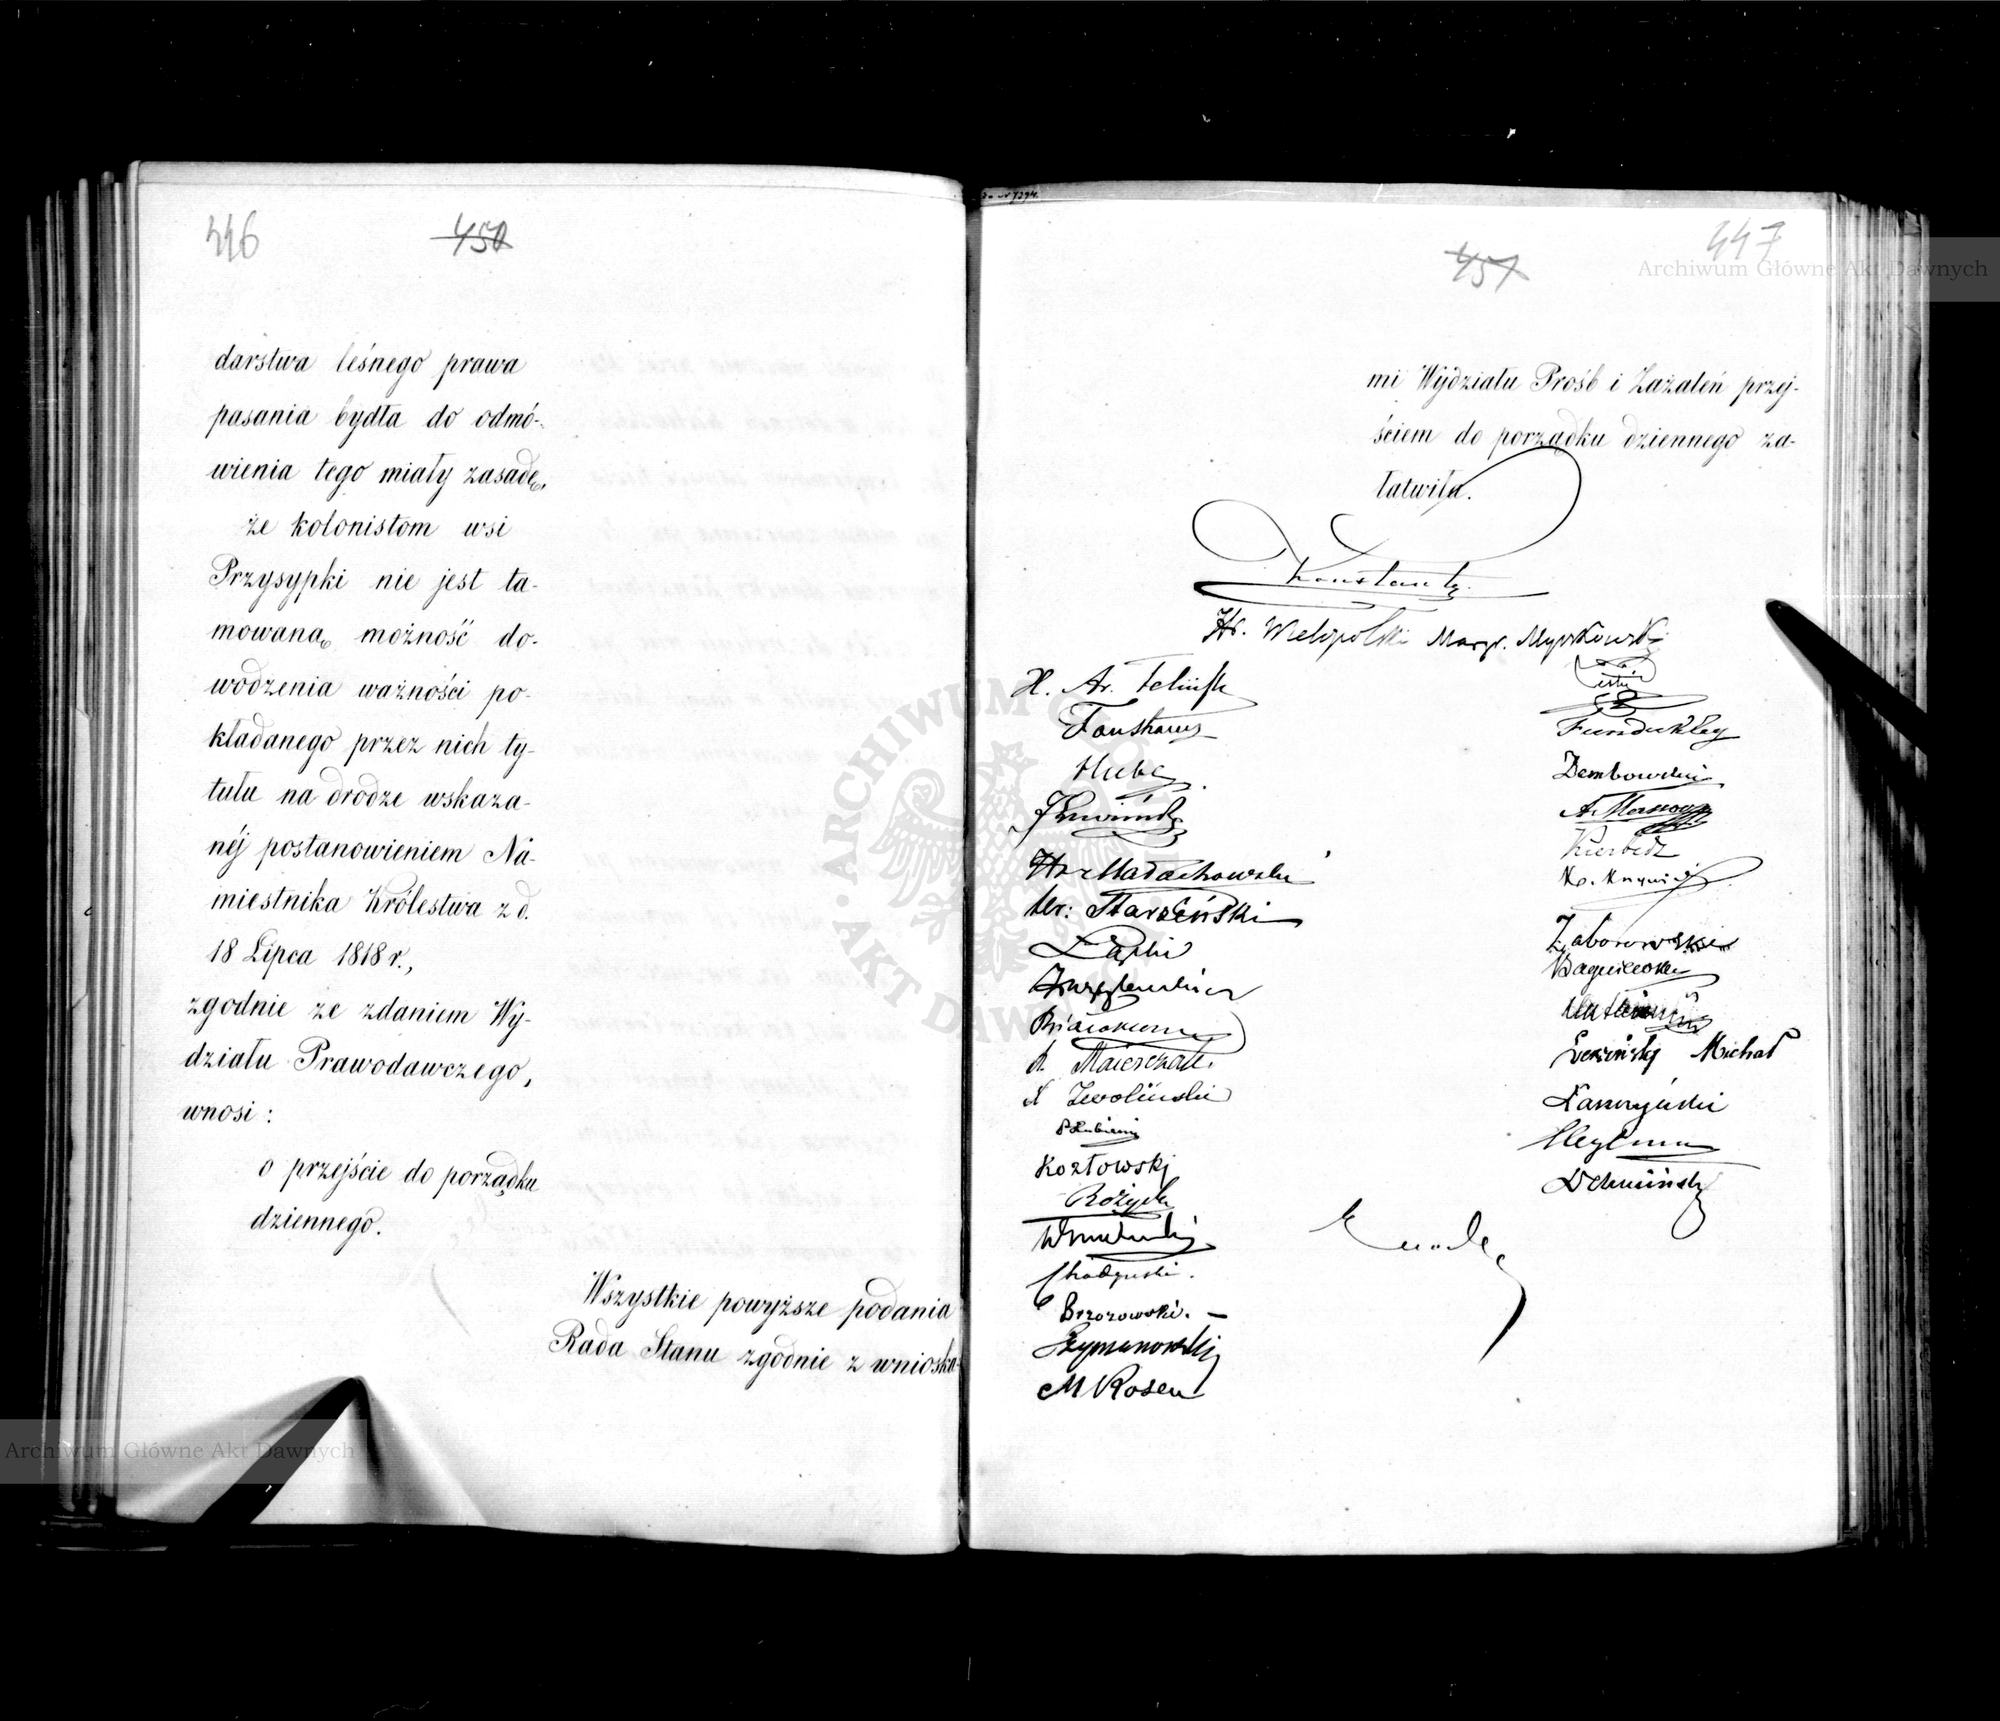 446
450
darstwa leśnego prawa
pasania bydła do odmó-
wienia tego miały zasadę,
że kolonistom wsi
Przysypki nie jest ta-
mowaną możność do-
wodzenia ważności po-
kładanego przez nich ty-
tułu na drodze wskaza-
néj postanowieniem Na-
miestnika Królestwa z d.
18 Lipca 1818 r.,
zgodnie ze zdaniem Wy-
działu Prawodawczego,
wnosi:
o przejście do porządku
dziennego.
Wszystkie powyższe podania
Rada Stanu zgodnie z wnioska-
447
451
mi Wydziału Prośb i Zażaleń przej-
ściem do porządku dziennego za-
łatwiła.
Konstanty
Hr. Wielopolski Margr. Myszkowski
X. Ar. Feliński
Fanshawe
Hube
Hr Małachowski
Hr: Starzeński
Łaski
A Zwoliński
P Łubieński
Kozłowski
Różycki
Brzozowski. —
Szymanowski
M Rosen
Fundukley
Dembowski
Kierbedz
Zaborowski
Bagniewski
Michał
Karczyński
Heylman
Archiwum Główne Akt Dawnych
Archiwum Główne Akt Dawnych
ARCHIWUM GŁÓWNE AKT DAWNYCH